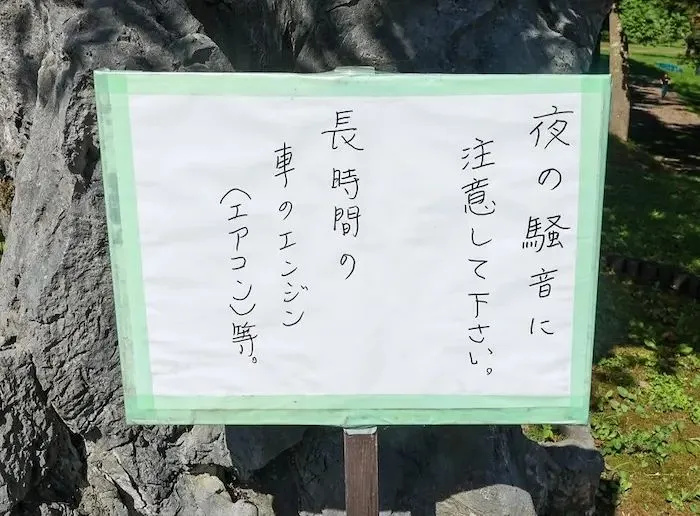 夜の騒音に
注意して下さい。
長時間の
車のエンジン
(エアコン)等。